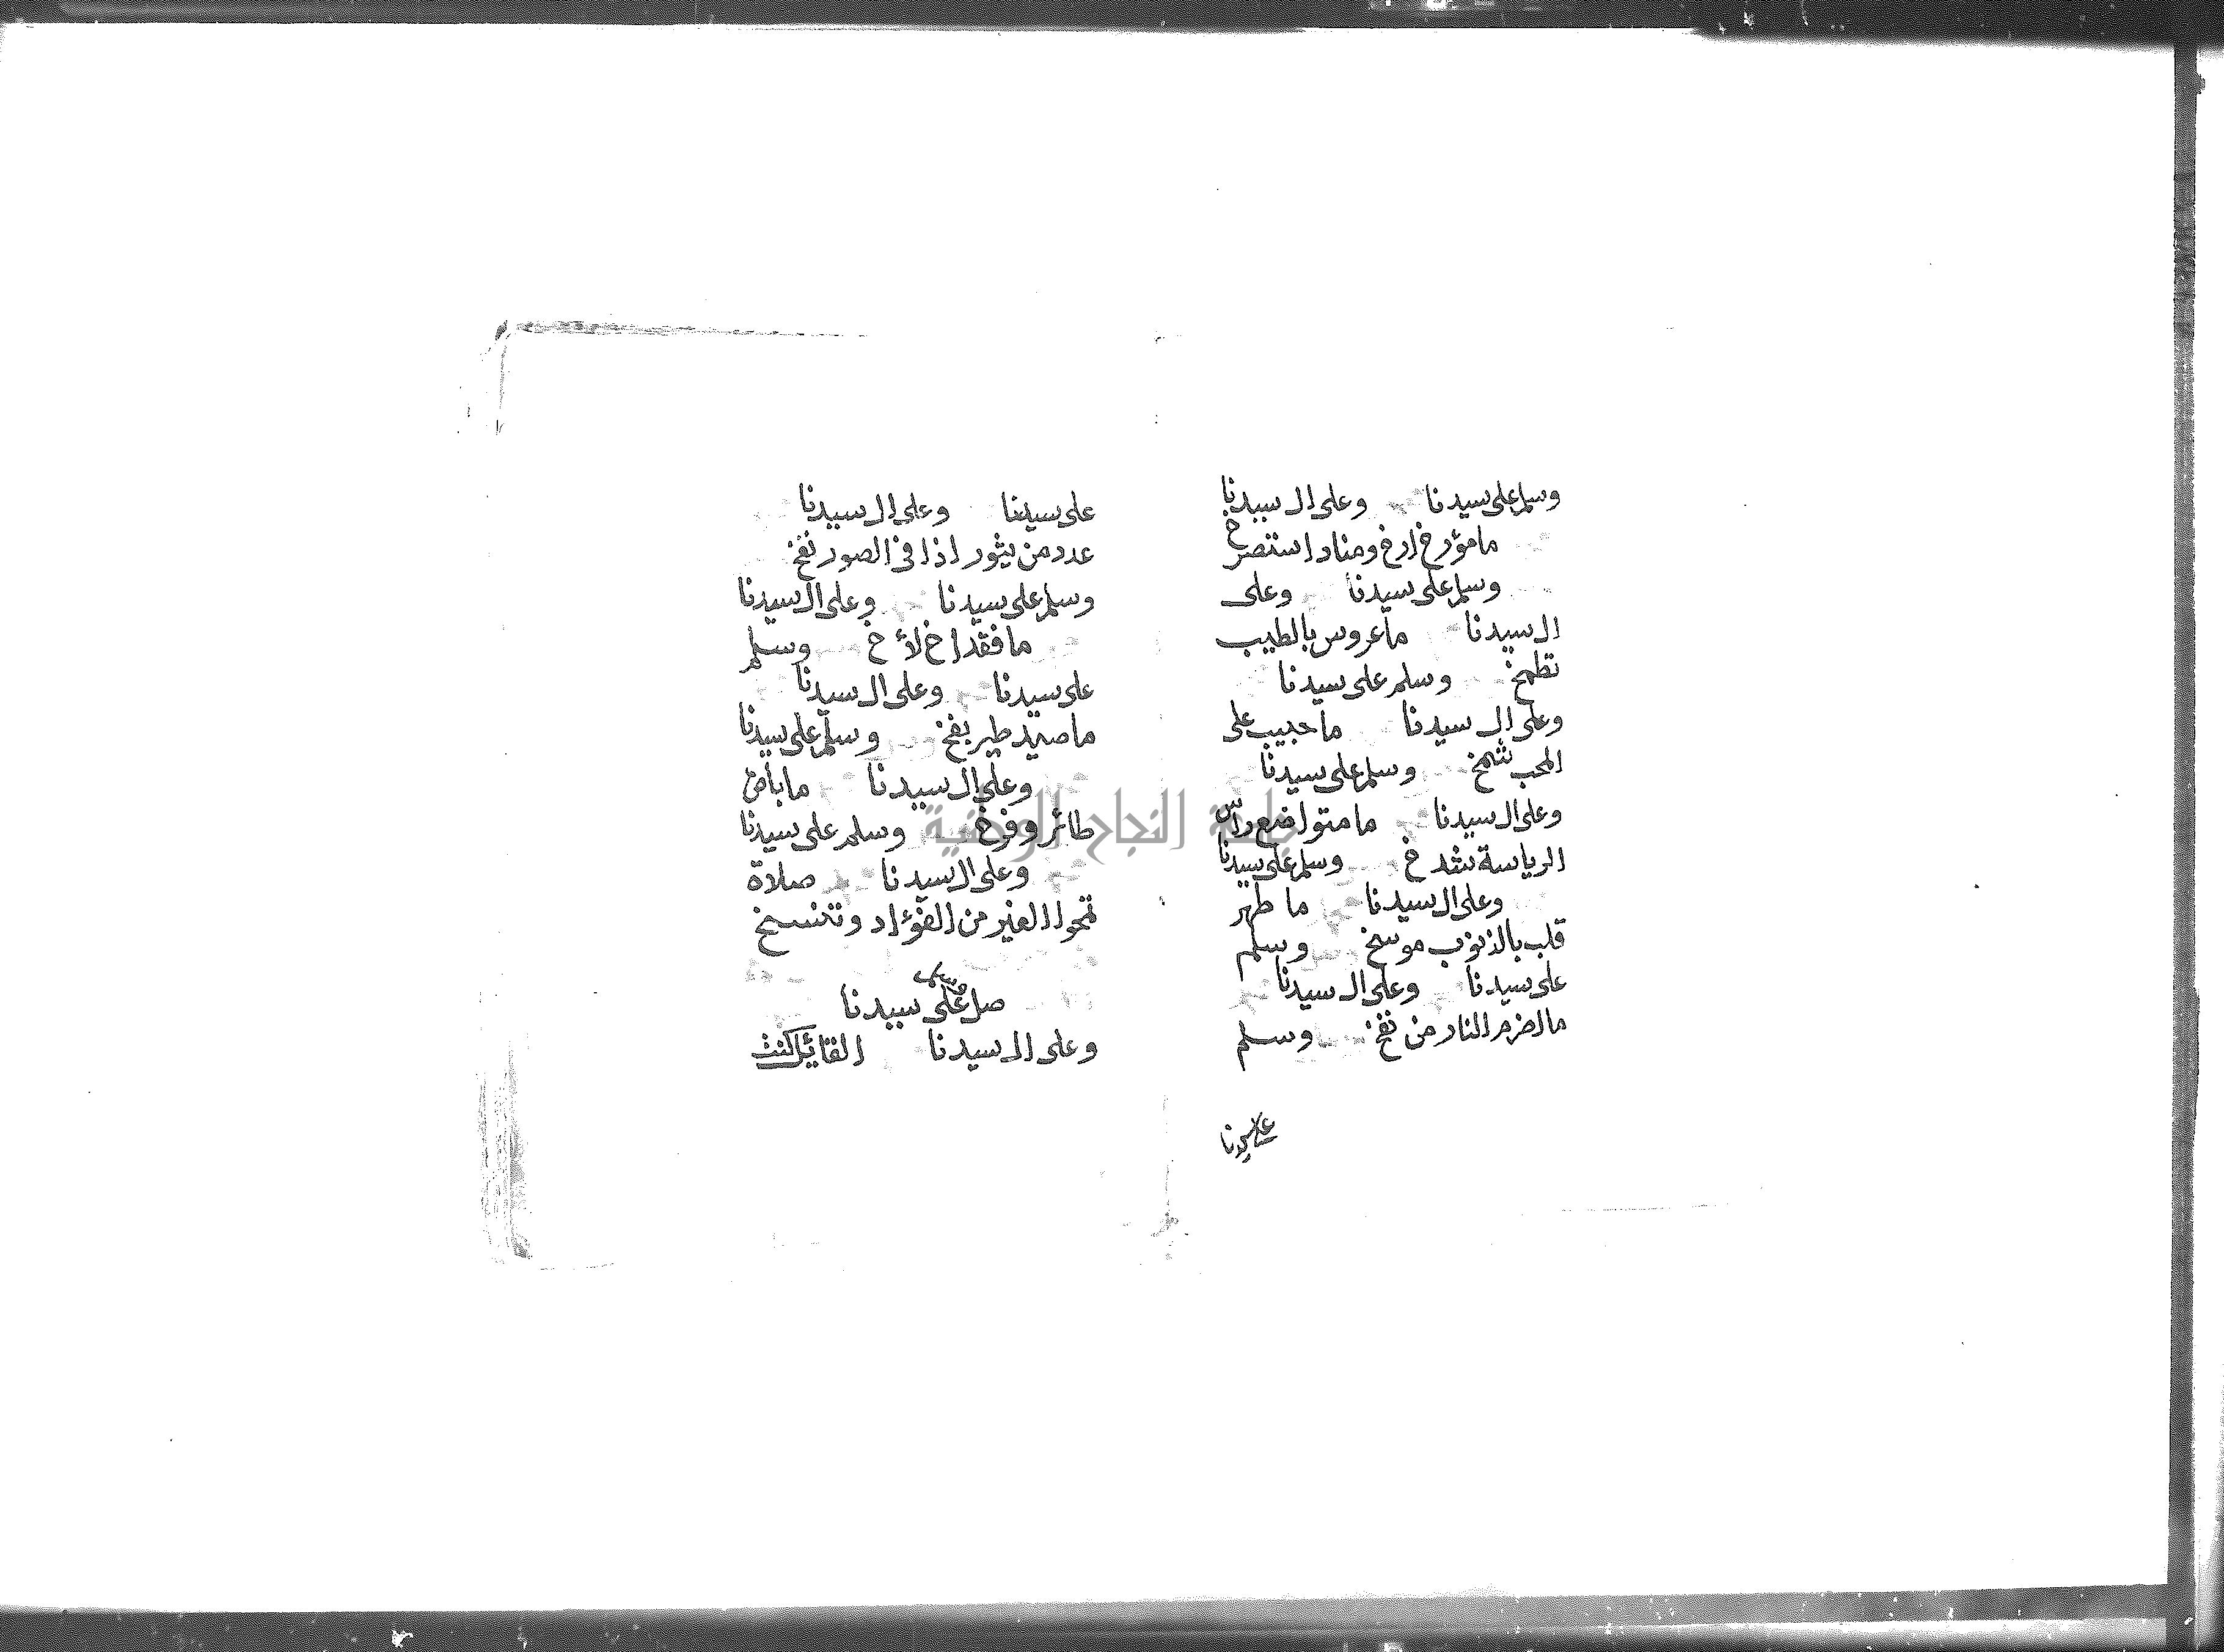 وسلم على سيدنا وعلى ال سيدنا
ما مؤرخ ارخ ومناد استصرخ
وسلم على سيدنا وعلى
ال سيدنا ما عروس بالطيب
تطمخ وسلم على سيدنا
وعلى ال سيدنا ما حبيب على
المحب شمخ وسلم على سيدنا
وعلى ال سيدنا ما متواضع راس
الرياسة شدخ وسلم على سيدنا
وعلى ال سيدنا ما طهر
قلب بالذنوب موسخ وسلم
على سيدنا وعلى ال سيدنا
ما اضرم النار من نفخ وسلم
على سيدنا
على سيدنا وعلى ال سيدنا
عدد من يثور اذا فى الصور نفخ
وسلم على سيدنا وعلى ال سيدنا
ما فقد اخ لاخ وسلم
على سيدنا وعلى ال سيدنا
ما صيد طير بفخ وسلم على سيدنا
وعلى ال سيدنا ما باض
طائر وفرخ وسلم على سيدنا
وعلى ال سيدنا صلاة
تمحوا الغير من الفؤاد وتنسخ
وسلم
صل على سيدنا
وعلى ال سيدنا القائل كنت
جامعة النجاح الوطنية